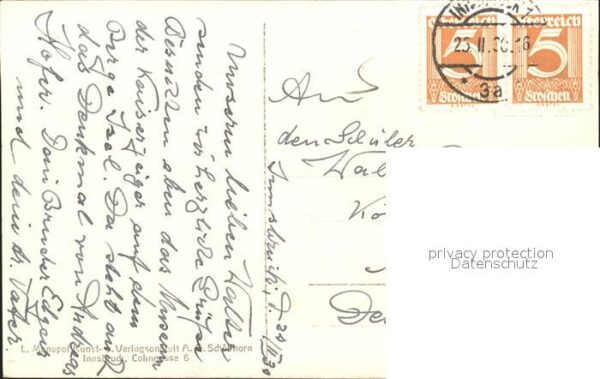 Unserm lieben Walter
senden wir herzliche Grüße
Besuchten eben das Museum
der Kaiserjäger auf dem
Berge Isel. Da steht auch
das Denkmal von Andreas
Hofer. Dein Bruder Edgar
und dein lb. Vater.
Innsbruck, d. 24/II 30
An
den Schüler
Wal
Kö
De
Österreich
5
Groschen
Österreich
5
Groschen
25.II.30.16
3a
L. Monopol Kunst- u. Verlagsanstalt A. G. Schöllhorn
Innsbruck, Colingasse 6
privacy protection
Datenschutz